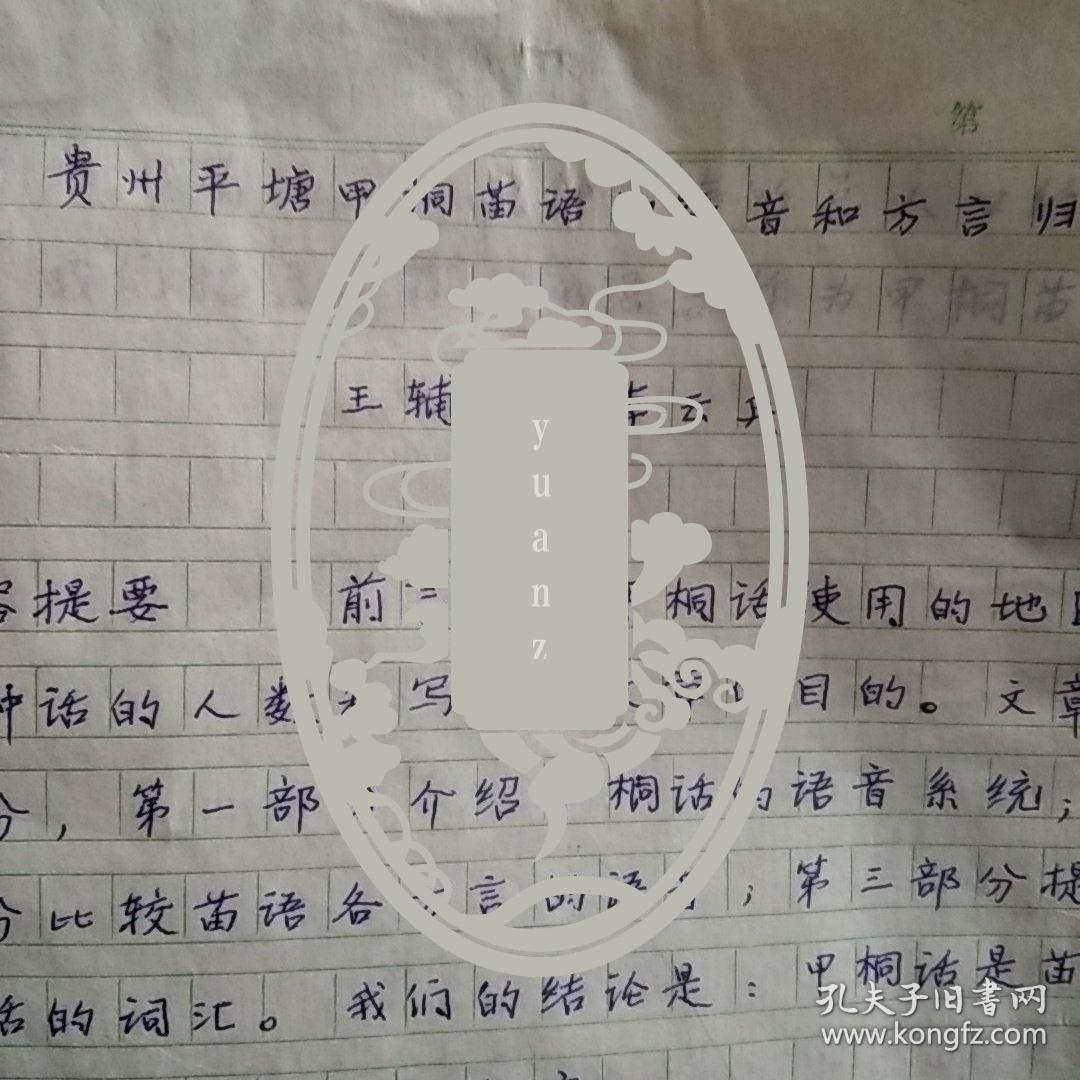 第
贵州平塘甲桐苗语 音和方言归
为甲桐苗
王辅 李云兵
yuanz
容提要 前言 桐话使用的地
种话的人数和写 目的。文章
分，第一部分介绍 桐话的语音系统；
分比较苗语各方言的语音；第三部分提
话的词汇。我们的结论是：甲桐话是苗
孔夫子旧書网
www.kongfz.com